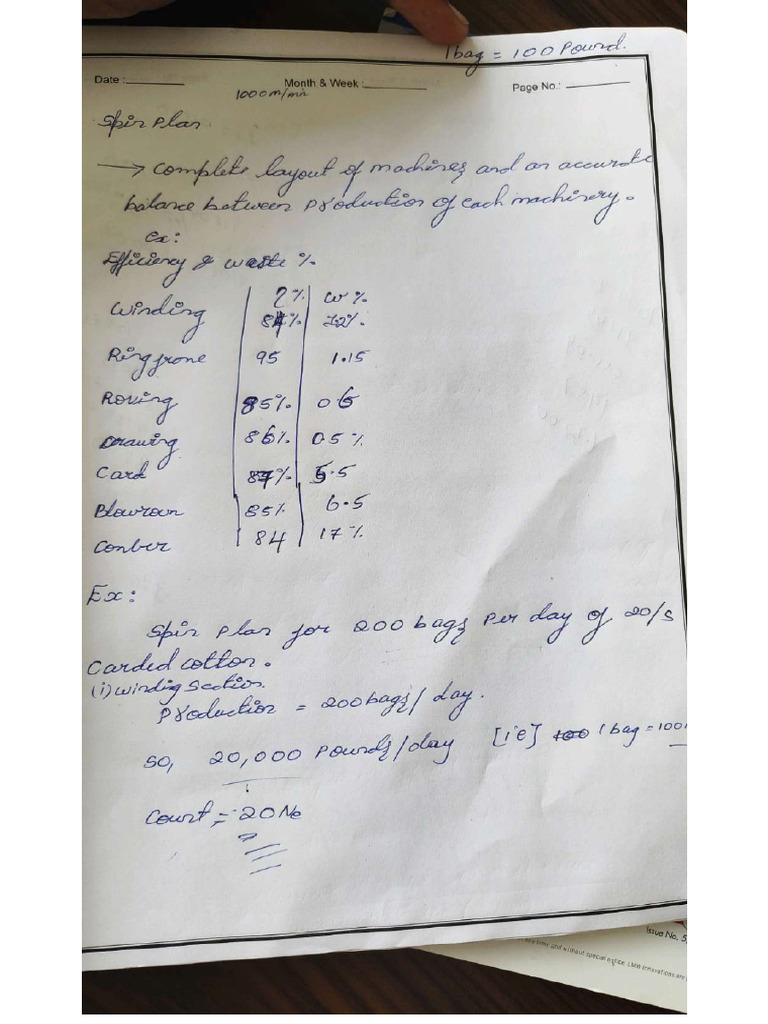 1bag = 100 Pound.
Date : Month & Week : Page No.:
1000m/min
Spin Plan
→ Complete layout of machines and an accurate
balance between production of each machinery.
Ex:
Efficiency & waste %
η% W%
Winding 84%
Ringfrane 95 1.15
Roving 85% 0.5
Drawing 86% 0.5%
Card 87% 5.5
Blowroom 85% 6.5
Comber 84 17%
Ex:
Spin Plan for 200 bags per day of 20/s
Carded cotton.
(i) Winding Section.
Production = 200bags/day.
So, 20,000 Pounds/day [i.e] 1 bag = 100
Count = 20 Ne
Issue No. 5,
any time and without special notice. LMW innovations are